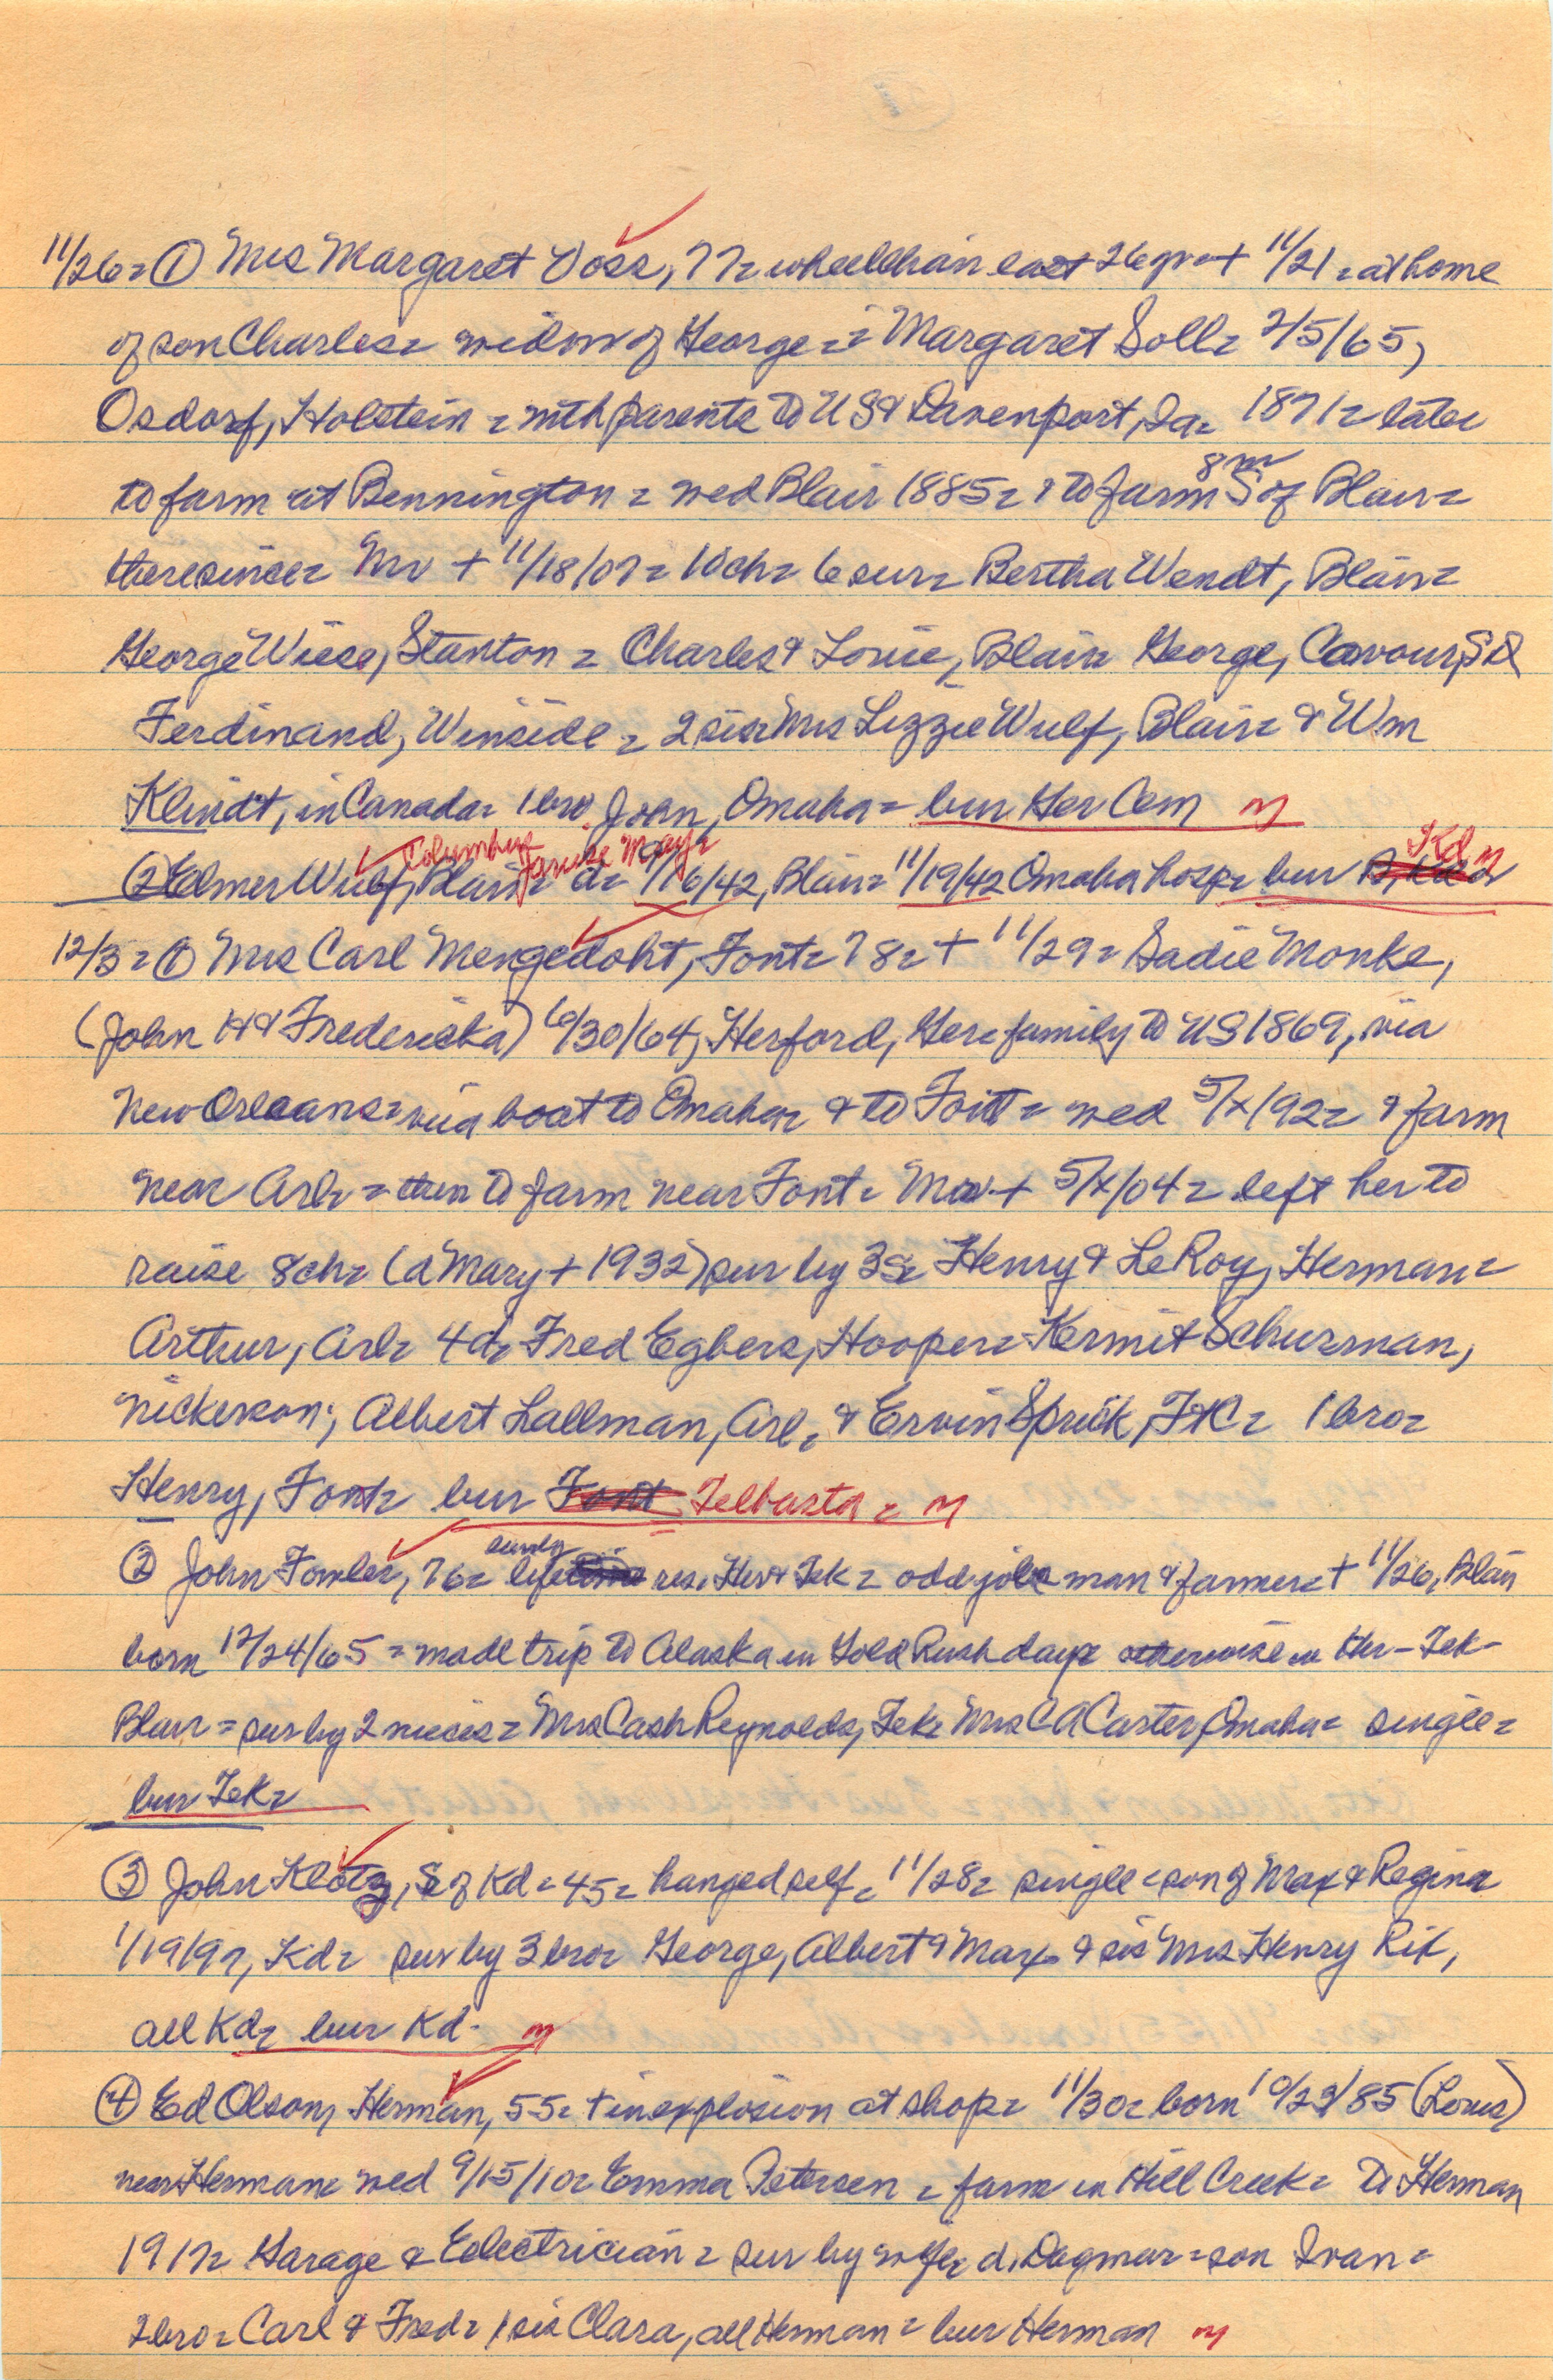 11/26 = ① Mrs Margaret Voss, 77 = wheelchair last 26 yr = + 11/21 = at home
of son Charles = widow of George = Margaret Soll = 2/5/65,
Osdorf, Holstein = with parents to US & Davenport, Ia = 1871 = later
to farm at Bennington = wed Blair 1885 = & to farm 8 m S of Blair =
there since = Mr + 11/18/07 = 10 ch = 6 sur = Bertha Wendt, Blair =
George Wiese, Stanton = Charles & Louie, Blair = George, Cavour, SD
Ferdinand, Winside = 2 sis = Mrs Lizzie Wulf, Blair = & Wm
Klindt, in Canada = 1 bro John, Omaha = bur Her Cem m
Columbus Janice Mary =
② Elmer Wulf, Blair = d = 1/16/42, Blair = 11/19/42 Omaha hosp = bur Kd m
12/3 = ① Mrs Carl Mengedoht, Font = 78 = + 11/29 = Sadie Monke,
(John H & Fredericka) 6/30/64, Herford, Ger = family to US 1869, via
New Orleans = via boat to Omaha = & to Font = wed 5/x/92 = & farm
near Arl = then to farm near Font = Mr + 5/x/04 = left her to
raise 8 ch = (d Mary + 1932) sur by 3 s = Henry & LeRoy, Herman =
Arthur, Arl = 4 d = Fred Egbers, Hooper = Kermit Schurman,
Nickerson; Albert Lallman, Arl, & Ervin Sprick, Ft C = 1 bro =
Henry, Font = bur Font Telbasta = m
② John Fowler, 76 = early life res. Her & Tek = odd jobs man & farmer = + 11/26, Blair
born 12/24/65 = made trip to Alaska in Gold Rush days otherwise in Her - Tek -
Blair = sur by 2 nieces = Mrs Cash Reynolds, Tek = Mrs C A Carter, Omaha = single =
bur Tek =
③ John Klotz, S of Kd = 45 = hanged self = 11/28 = single = son of Max & Regina
1/19/97, Kd = sur by 3 bro = George, Albert & Max = & sis Mrs Henry Rix,
all Kd = bur Kd - m
④ Ed Olson, Herman, 55 = + in explosion at shop = 11/30 = born 10/23/85 (Louis)
near Herman = wed 9/15/10 = Emma Petersen = farm in Hill Creek = to Herman
1917 = Garage & Eelectrician = sur by wife = d. Dagmar = son Ivan =
2 bro = Carl & Fred = 1 sis Clara, all Herman = bur Herman m